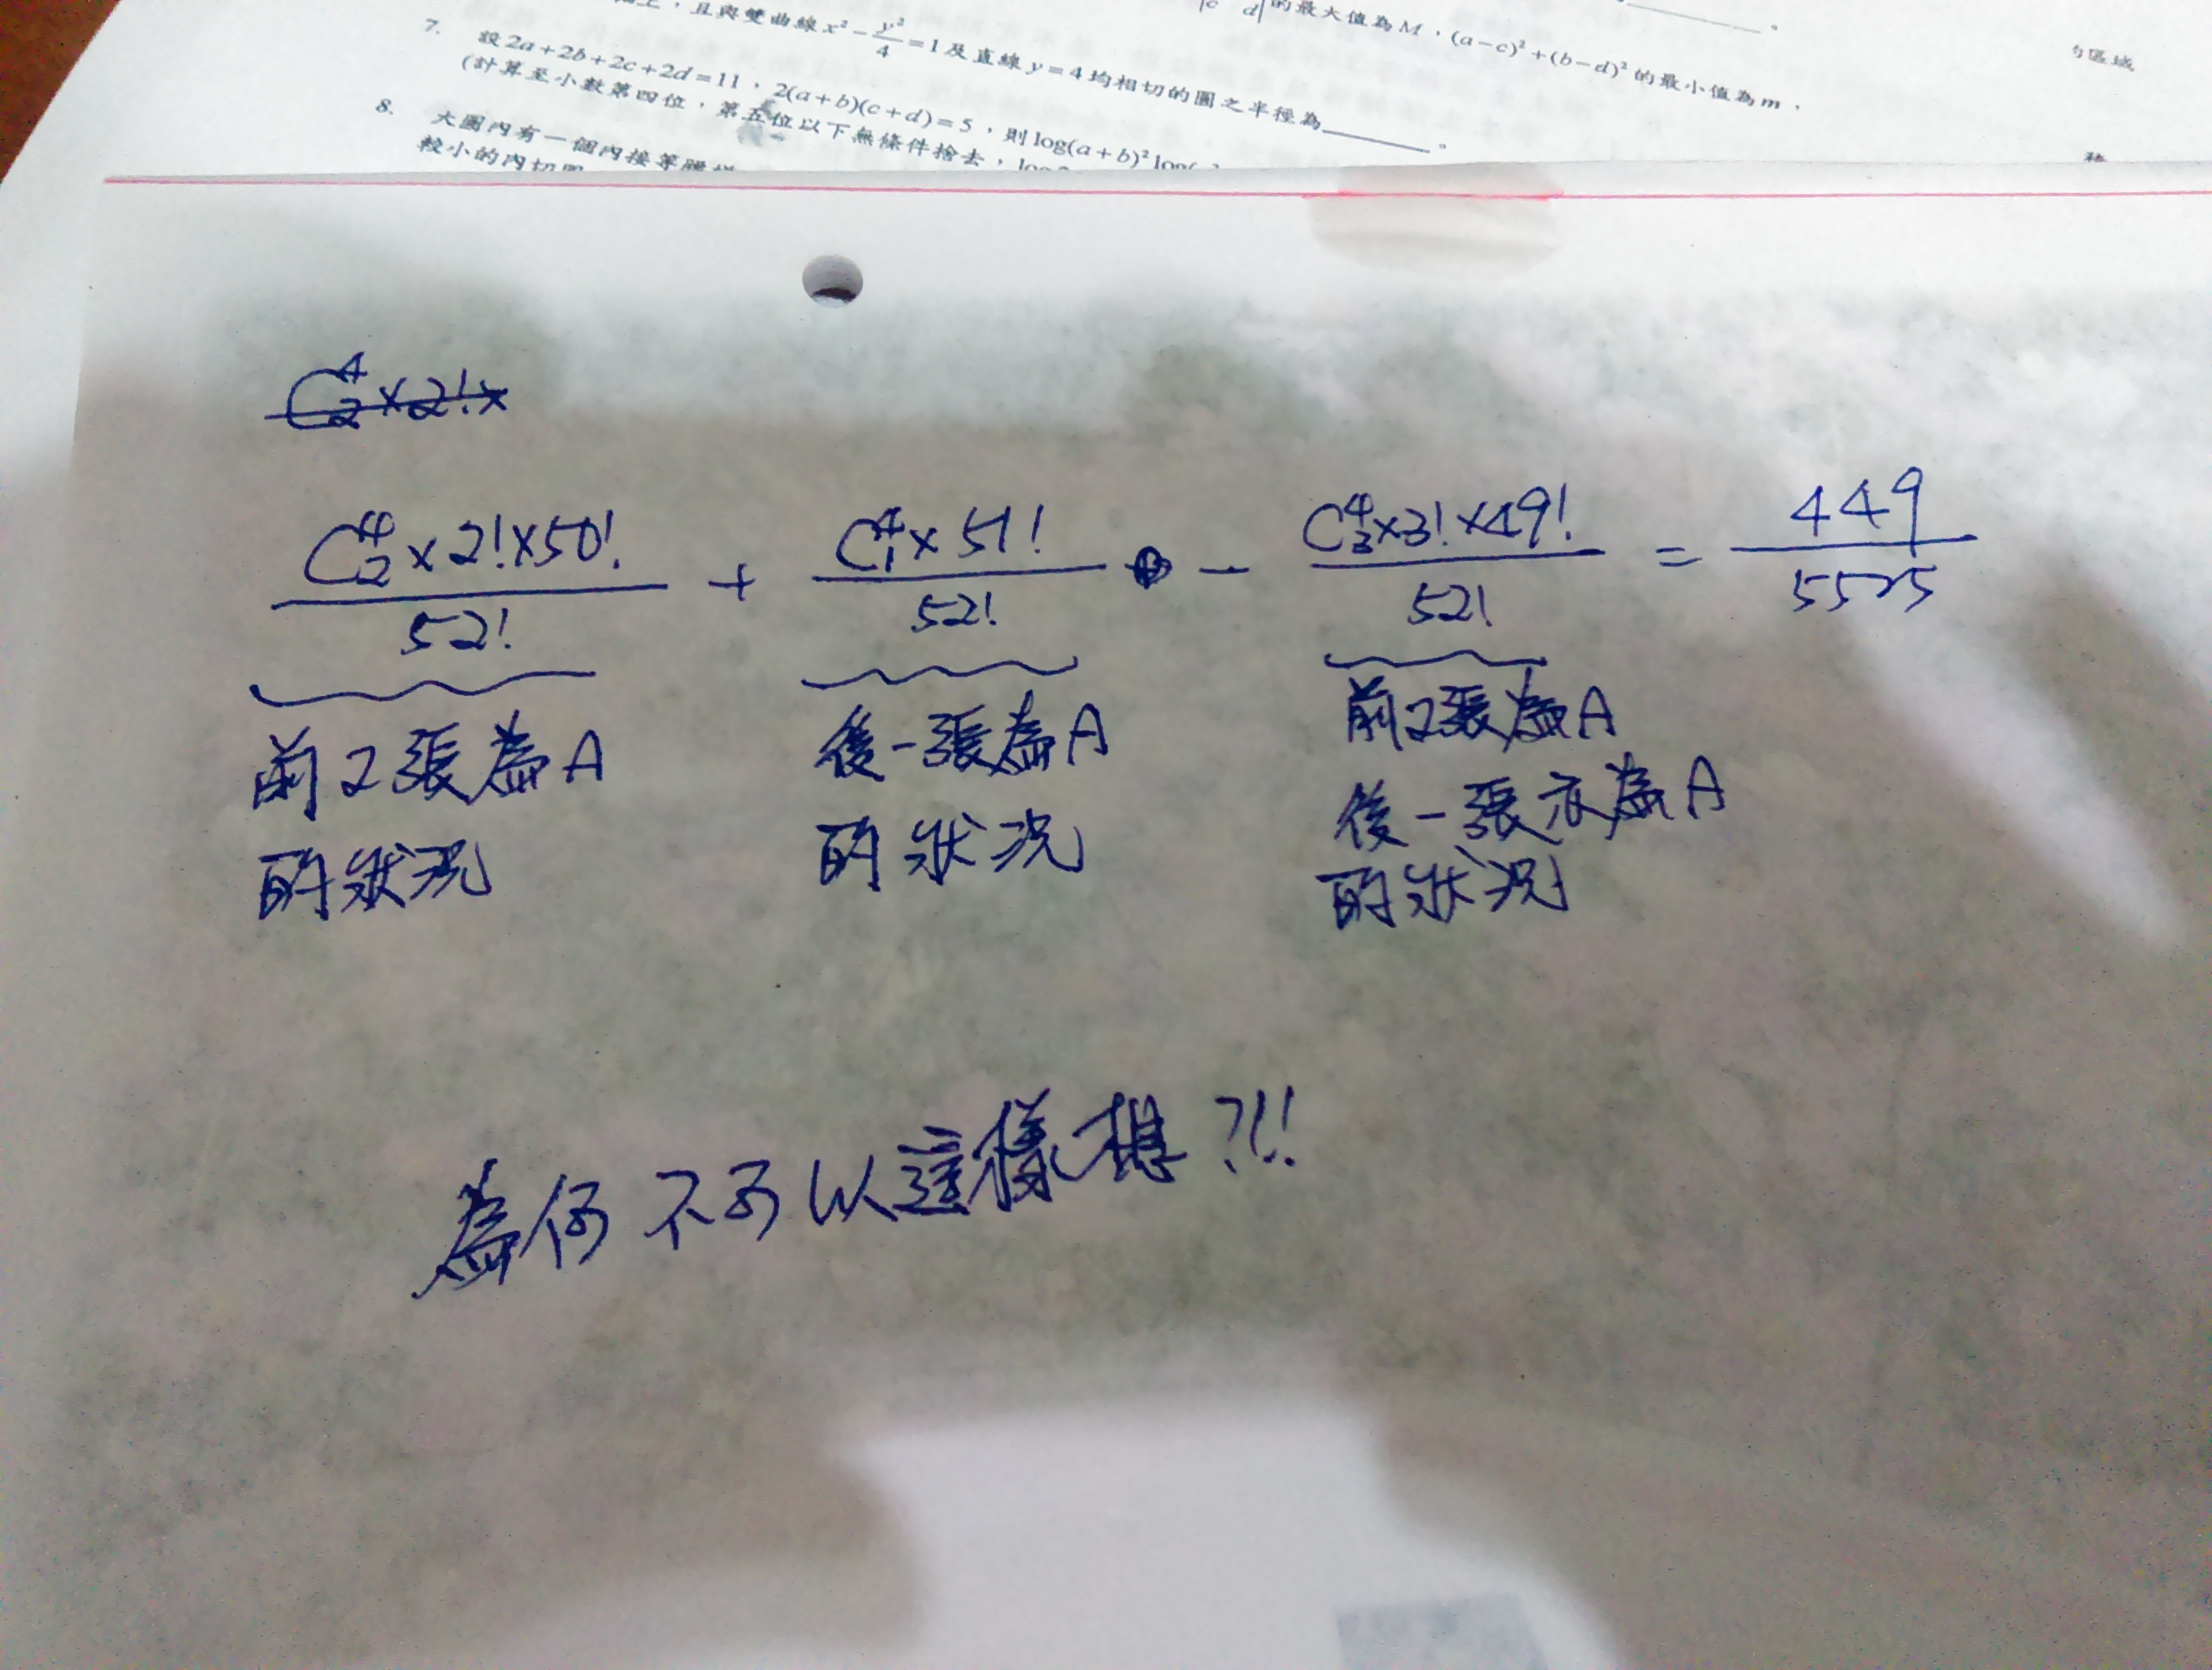 的最大值為M,(a-c)²+(b-d)²的最小值為m,
上,且與雙曲線x²-y²/4=1及直線y=4均相切的圓之半徑為______。
7. 設2a+2b+2c+2d=11,2(a+b)(c+d)=5,則log(a+b)²
(計算至小數第四位,第五位以下無條件捨去,
8. 大圓內有一個內接等腰梯
較小的內切圓
區域
C⁴₂×2!×
C⁴₂×2!×50!/52! + C⁴₁×51!/52! - C⁴₃×3!×49!/52! = 449/5525
前2張為A 後一張為A 前2張為A
的狀況 的狀況 後一張亦為A
的狀況
為何不可以這樣想?!!